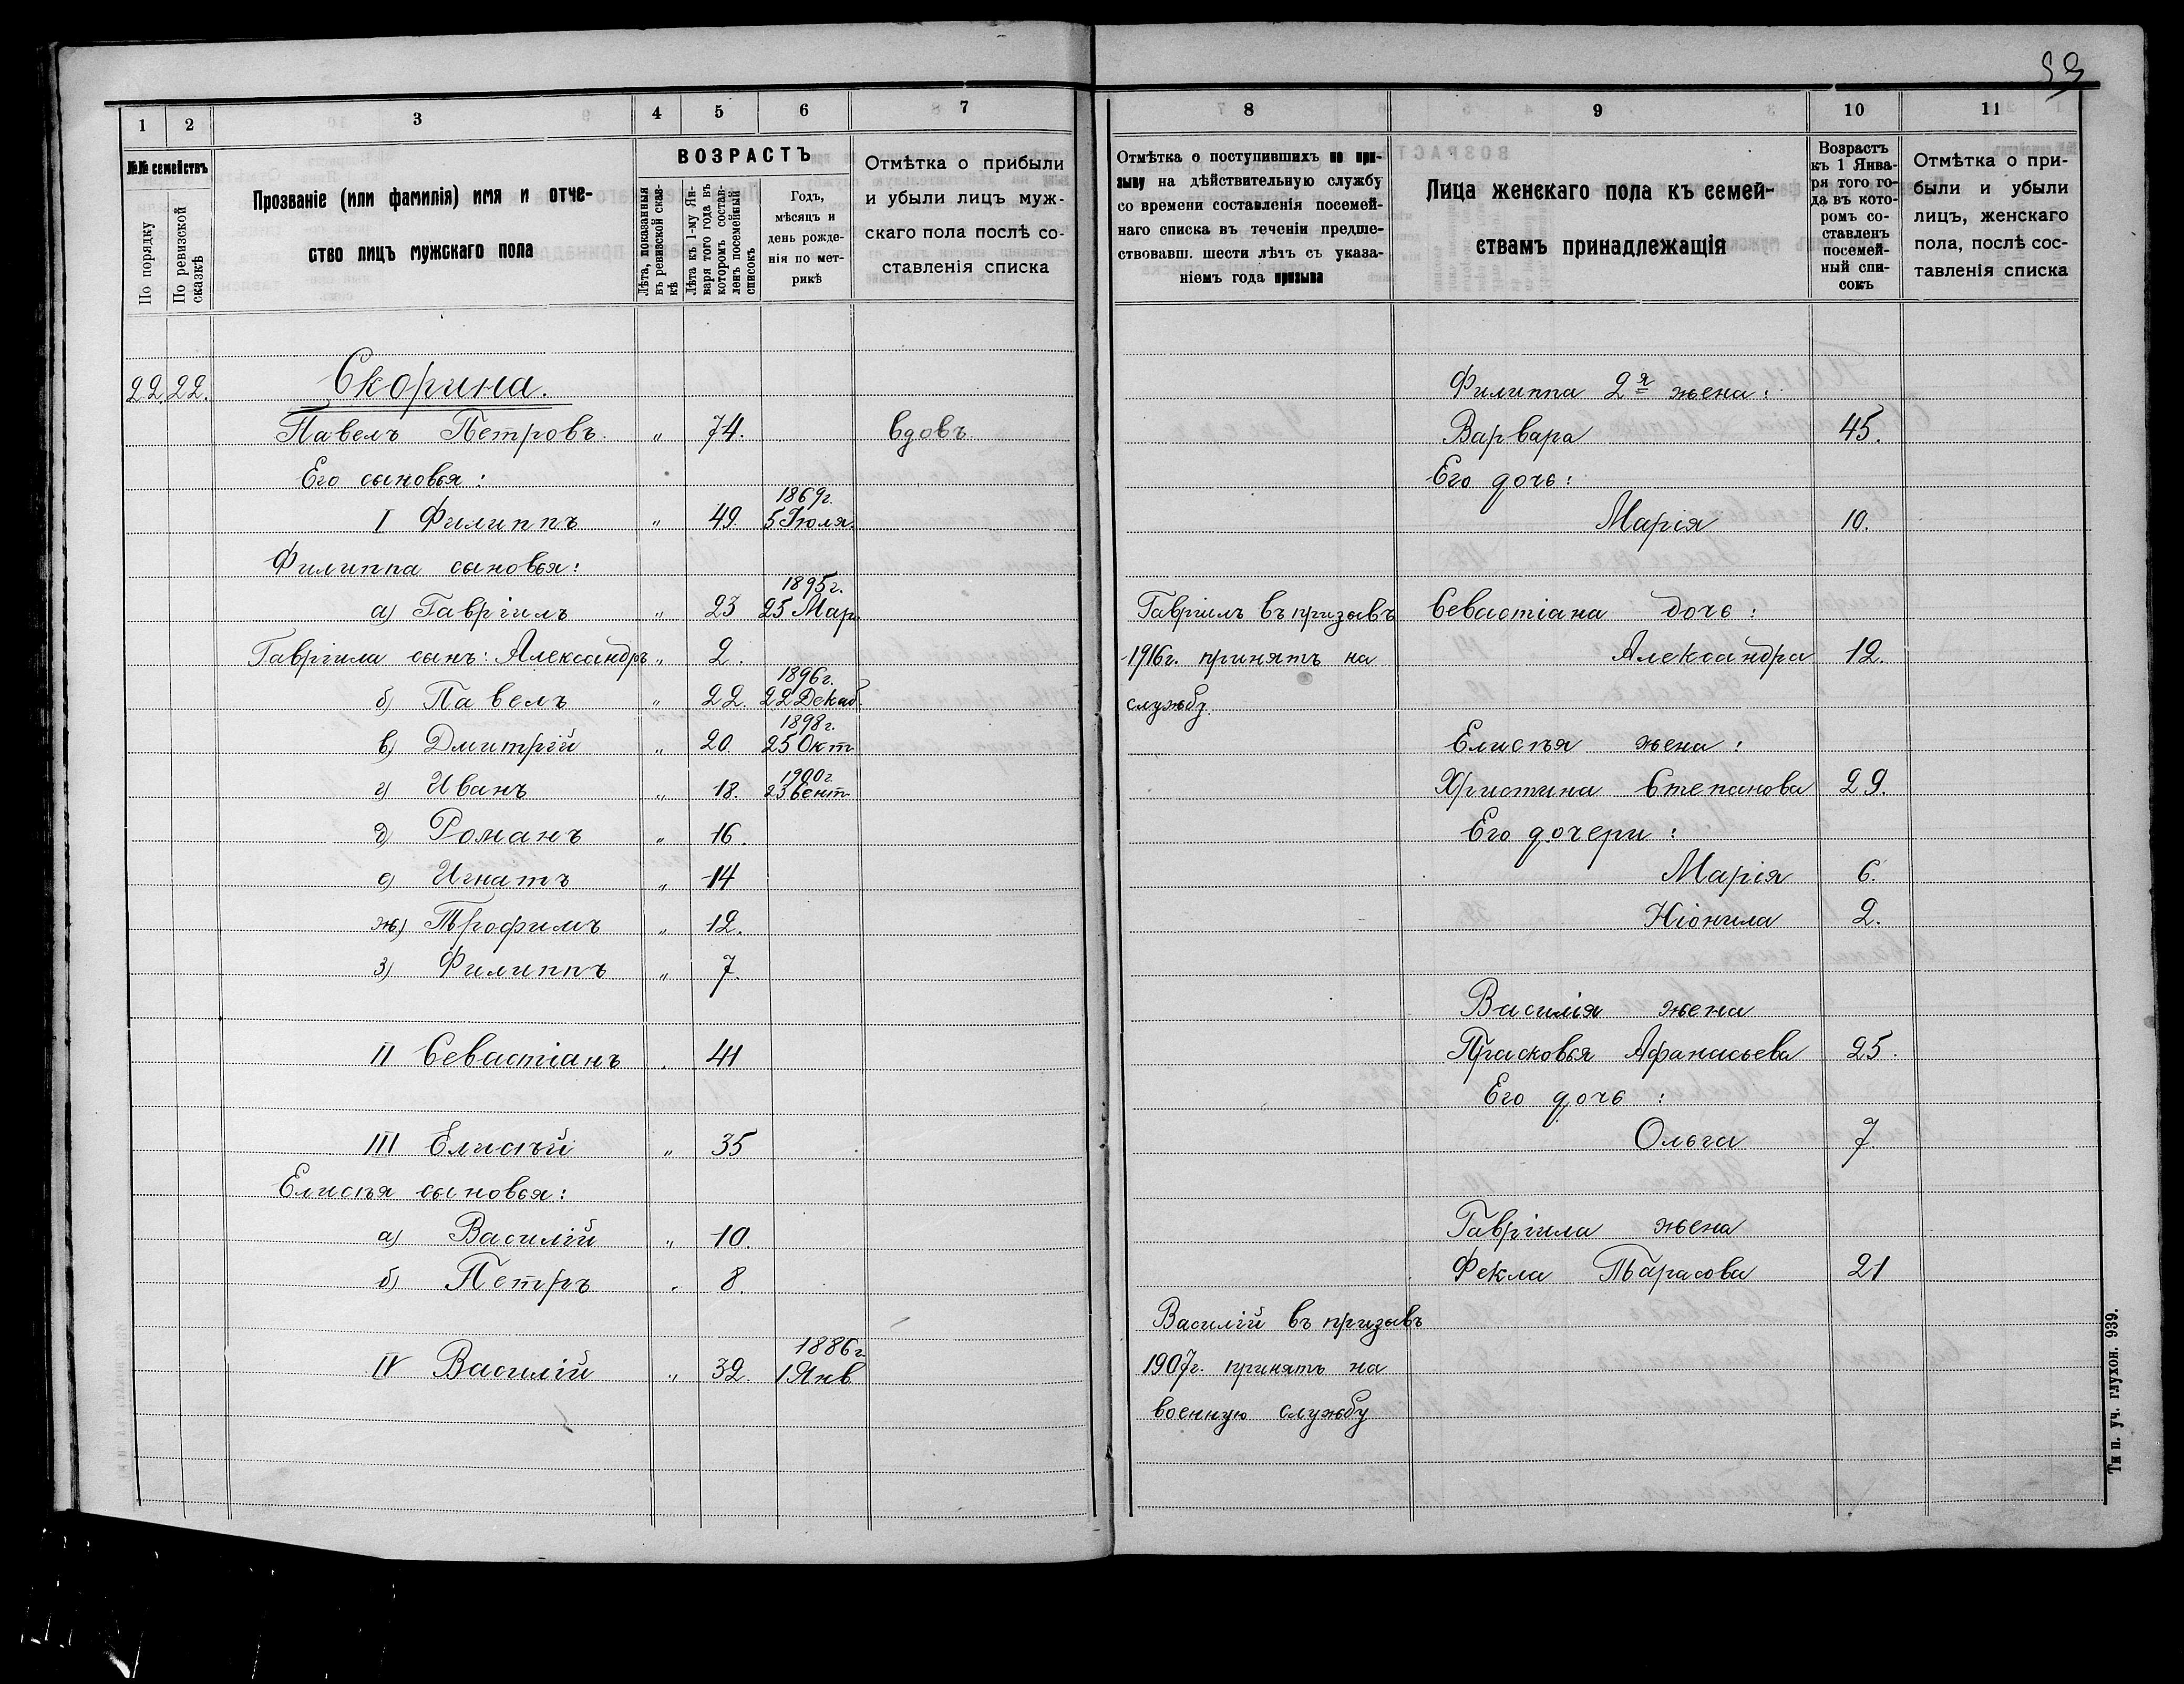 93
1 2 3 4 5 6 7
№№ семействъ
По порядку
По ревизской сказкѣ
Прозваніе (или фамилія) имя и отче-
ство лицъ мужскаго пола
ВОЗРАСТЪ
Лѣта, показанныя
въ ревизской сказ-
кѣ
Лѣта къ 1-му Ян-
варя того года въ
которомъ состав-
ленъ посемейный
списокъ
Годъ,
мѣсяцъ и
день рожде-
нія по мет-
рикѣ
Отмѣтка о прибыли
и убыли лицъ муж-
скаго пола послѣ со-
ставленія списка
22. 22. Скорина.
Павелъ Петровъ. " 74. вдовъ.
Его сыновья:
1869г.
I Филиппъ " 49. 5 Іюля.
Филиппа сыновья:
1895г.
а) Гавріилъ " 23 25 Мар.
Гавріила сынъ: Александръ " 2.
1896г.
б) Павелъ " 22. 22 Декаб.
1898г.
в) Дмитрій " 20. 25 Окт.
1900г.
г) Иванъ " 18. 23 Сент.
д) Романъ " 16.
е) Игнатъ " 14
ж) Трофимъ " 12.
з) Филиппъ " 7.
II Севастіанъ " 41
III Елисѣй " 35
Елисѣя сыновья:
а) Василій " 10.
б) Петръ " 8.
1886г.
IV Василій " 32. 1 Янв.
8 9 10 11
Отмѣтка о поступившихъ по при-
зыву на дѣйствительную службу
со времени составленія посемей-
наго списка въ теченіи предше-
ствовавш. шести лѣтъ съ указа-
ніемъ года призыва
Лица женскаго пола къ семей-
ствамъ принадлежащія
Возрастъ
къ 1 Янва-
ря того го-
да въ кото-
ромъ со-
ставленъ
посемей-
ный спи-
сокъ
Отмѣтка о при-
были и убыли
лицъ, женскаго
пола, послѣ сос-
тавленія списка
Филиппа 2я жена:
Варвара 45.
Его дочь:
Марія 10.
Гавріилъ въ призывъ Севастіана дочь:
1916г. принятъ на Александра 12.
службу.
Елисѣя жена:
Христина Степанова 29.
Его дочери:
Марія 6.
Ніонила 2.
Василія жена
Прасковья Афанасьева 25.
Его дочь:
Ольга 7
Гавріила жена
Фекла Тарасова 21
Василій въ призывъ
1907г. принятъ на
военную службу
Тип. уч. глухон. 939.